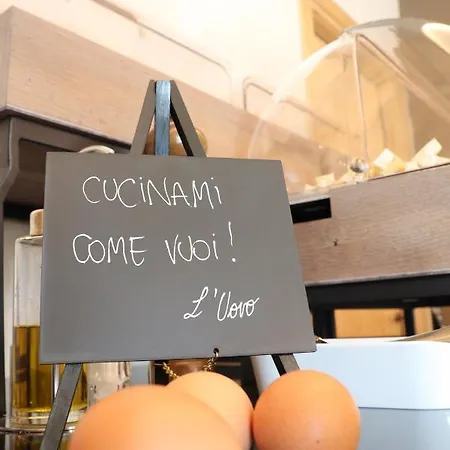 CUCINAMI
COME VUOI!
L'Uovo